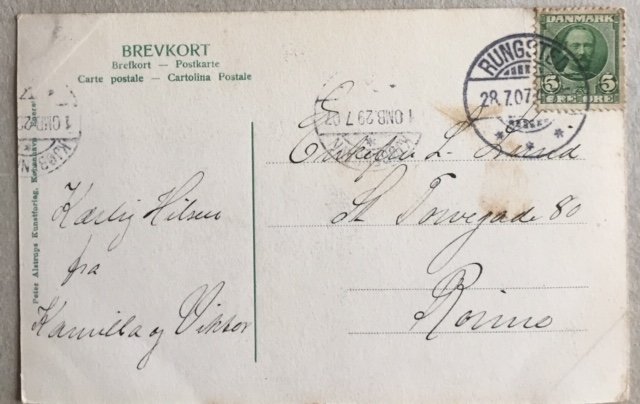 BREVKORT
Brefkort — Postkarte
Carte postale — Cartolina Postale
DANMARK
5 5
ØRE
RUNGSTED
28.7.07
1 OMB 29 7 07
1 OMB
Peter Alstrups Kunstforlag, København
Kærlig Hilsen
fra
Kamilla og Viktor
Enkefru L. Lund
St Torvegade 80
Rønne